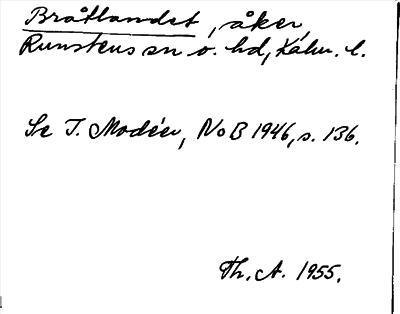 Bråtlandet, åker,
Runstens sn o. hd, Kalm. l.
Se I. Modéer, NoB 1946, s. 136.
Th. A. 1955.